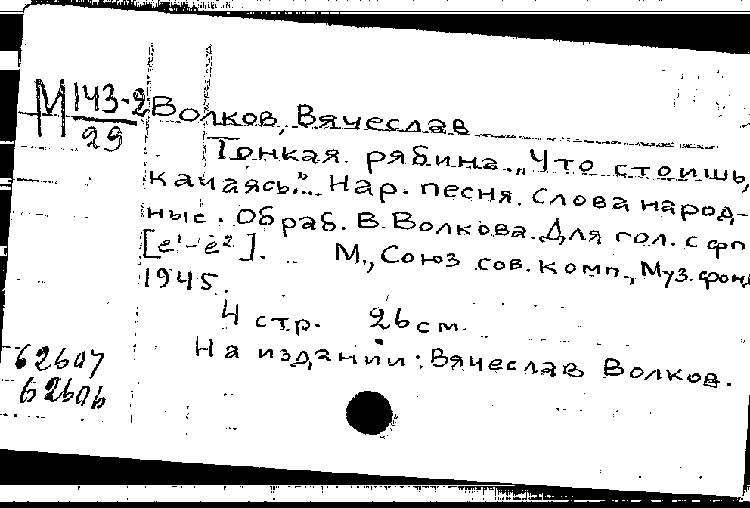 М 143-2 Волков, Вячеслав
29
Тонкая рябина. „Что стоишь,
качаясь..." Нар. песня. Слова народ-
ные. Обраб. В. Волкова. Для гол. с фп
[e¹-e²]. М., Союз сов. комп., Муз. фонд
1945.
4 стр. 26 см.
На издании: Вячеслав Волков.
62607
62606